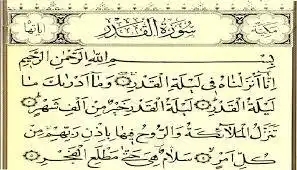 مكية سُورَةُ الْقَدْرِ آياتها
بِسْمِ اللَّهِ الرَّحْمَٰنِ الرَّحِيمِ
إِنَّا أَنزَلْنَاهُ فِي لَيْلَةِ الْقَدْرِ ۝ وَمَا أَدْرَاكَ مَا
لَيْلَةُ الْقَدْرِ ۝ لَيْلَةُ الْقَدْرِ خَيْرٌ مِّنْ أَلْفِ شَهْرٍ ۝
تَنَزَّلُ الْمَلَائِكَةُ وَالرُّوحُ فِيهَا بِإِذْنِ رَبِّهِم مِّن
كُلِّ أَمْرٍ ۝ سَلَامٌ هِيَ حَتَّىٰ مَطْلَعِ الْفَجْرِ ۝